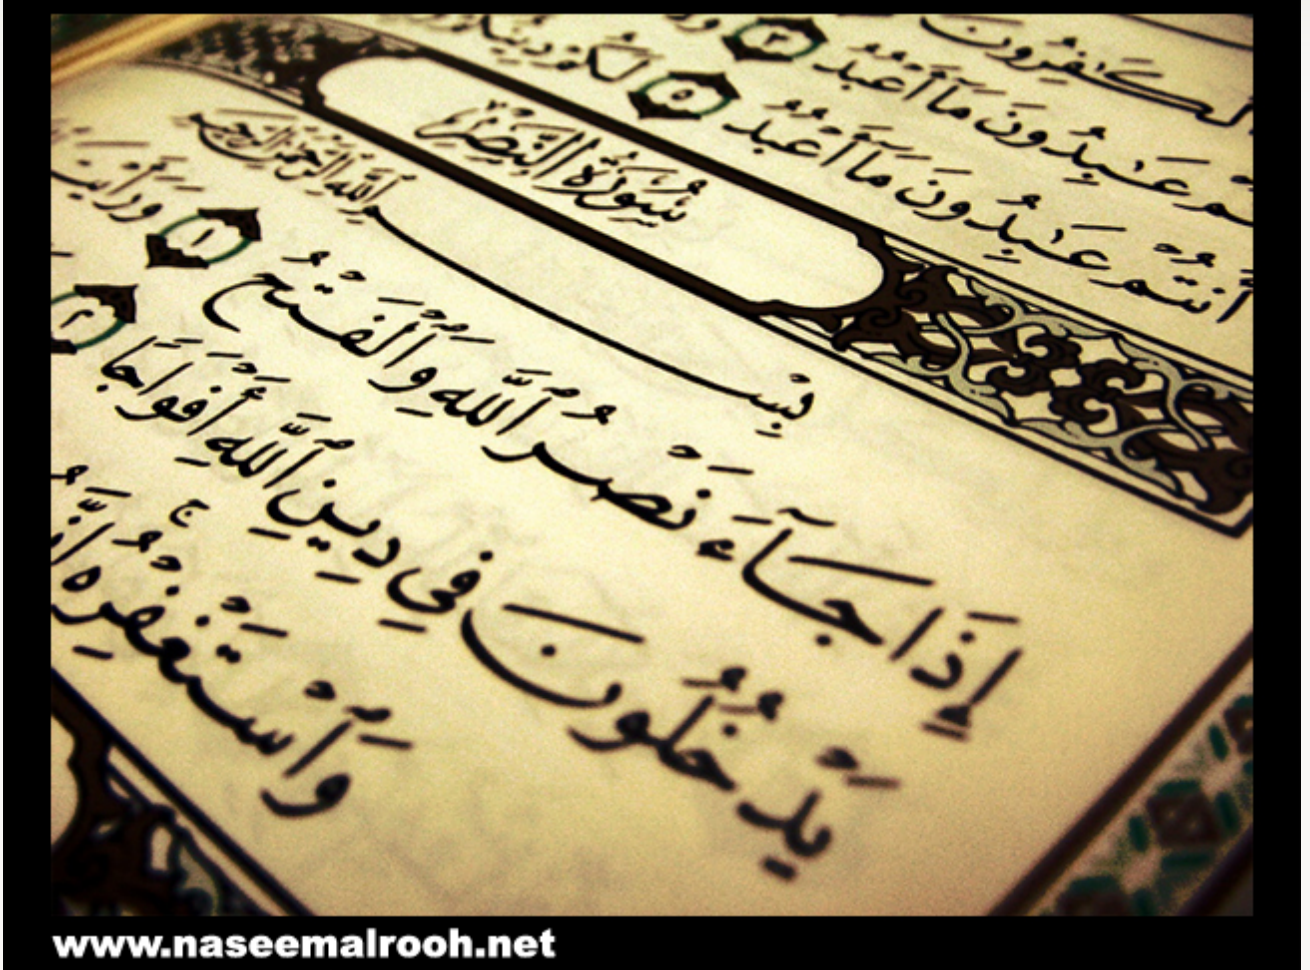 ٱلْكَٰفِرُونَ
مَآ أَعْبُدُ ٣
عَٰبِدُونَ مَآ أَعْبُدُ ٥ لَكُمْ دِينُكُمْ
أَنتُمْ عَٰبِدُونَ مَآ أَعْبُدُ
سُورَةُ النَّصْرِ
بِسْمِ اللَّهِ الرَّحْمَٰنِ الرَّحِيمِ
إِذَا جَآءَ نَصْرُ ٱللَّهِ وَٱلْفَتْحُ ١ وَرَأَيْتَ
يَدْخُلُونَ فِى دِينِ ٱللَّهِ أَفْوَاجًا ٢
وَٱسْتَغْفِرْهُ ۚ إِنَّهُۥ
www.naseemalrooh.net